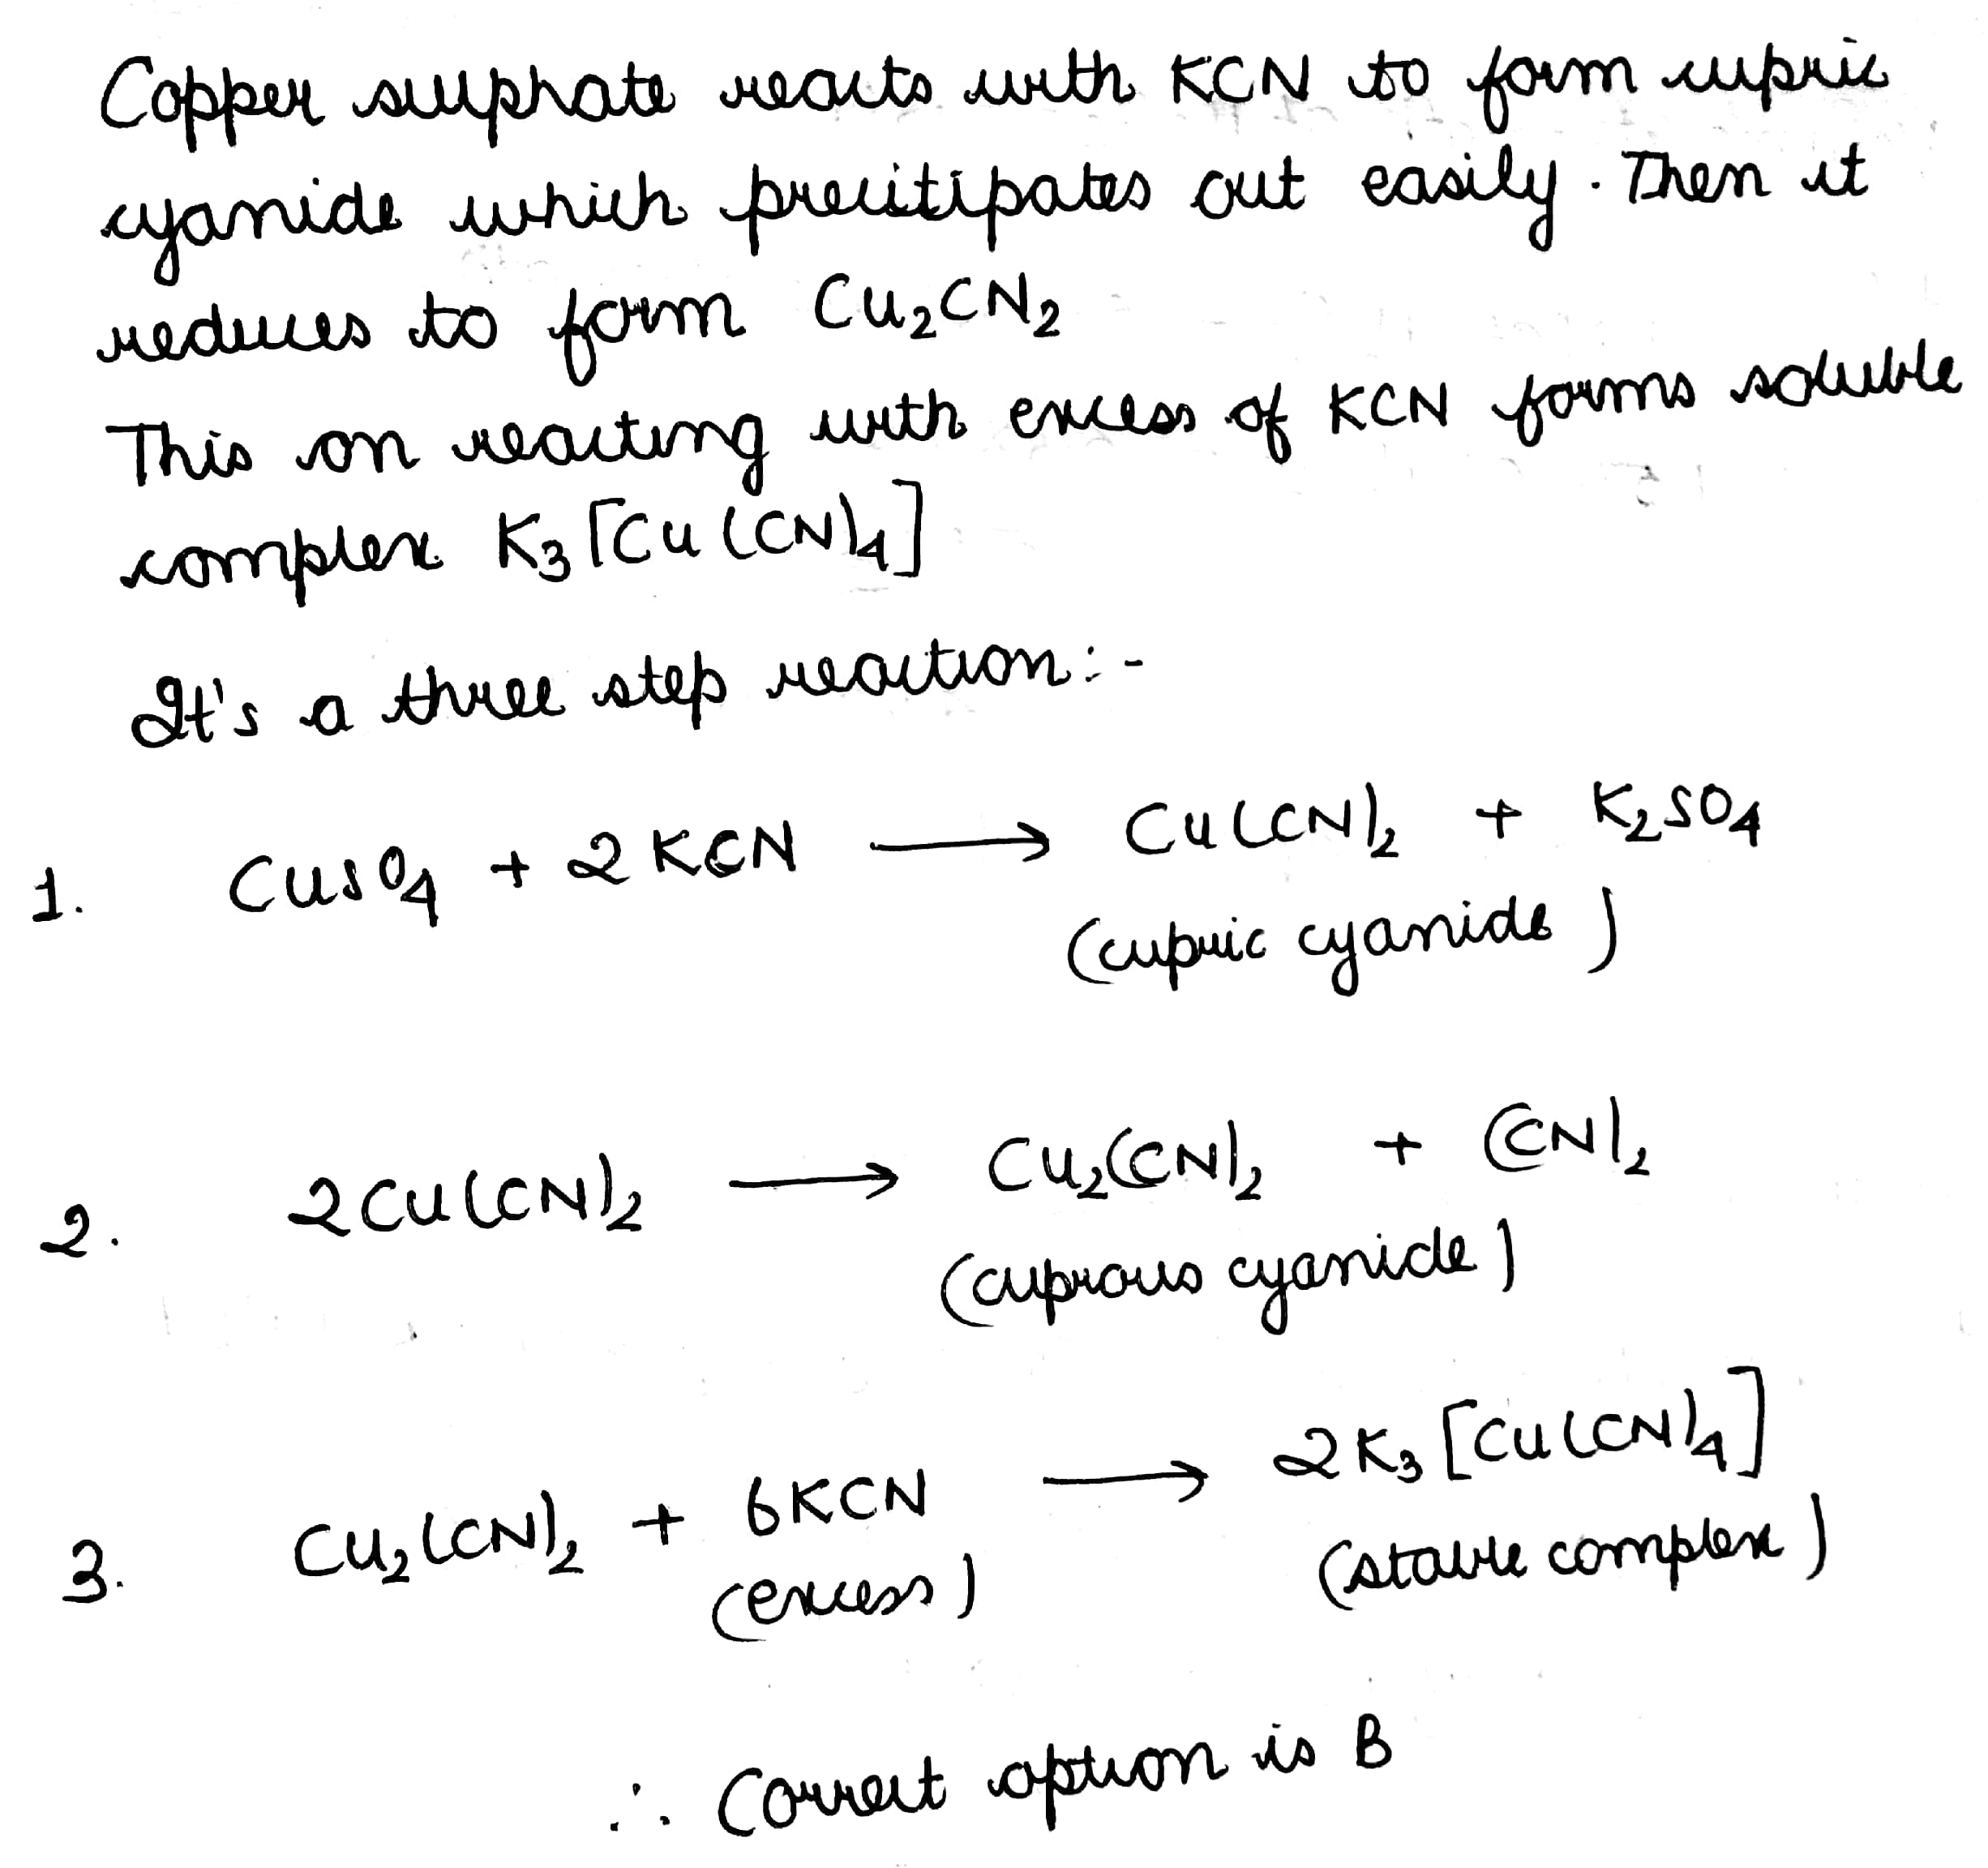 Copper sulphate reacts with KCN to form cupric
cyanide which precitipates out easily. Then it
reduces to form Cu₂CN₂
This on reacting with excess of KCN forms soluble
complex K₃[Cu(CN)₄]
It's a three step reaction:-
1. CuSO₄ + 2KCN ⟶ Cu(CN)₂ + K₂SO₄
(cupric cyanide)
2. 2Cu(CN)₂ ⟶ Cu₂(CN)₂ + (CN)₂
(cuprous cyanide)
3. Cu₂(CN)₂ + 6KCN ⟶ 2K₃[Cu(CN)₄]
(excess) (stable complex)
∴ Correct option is B